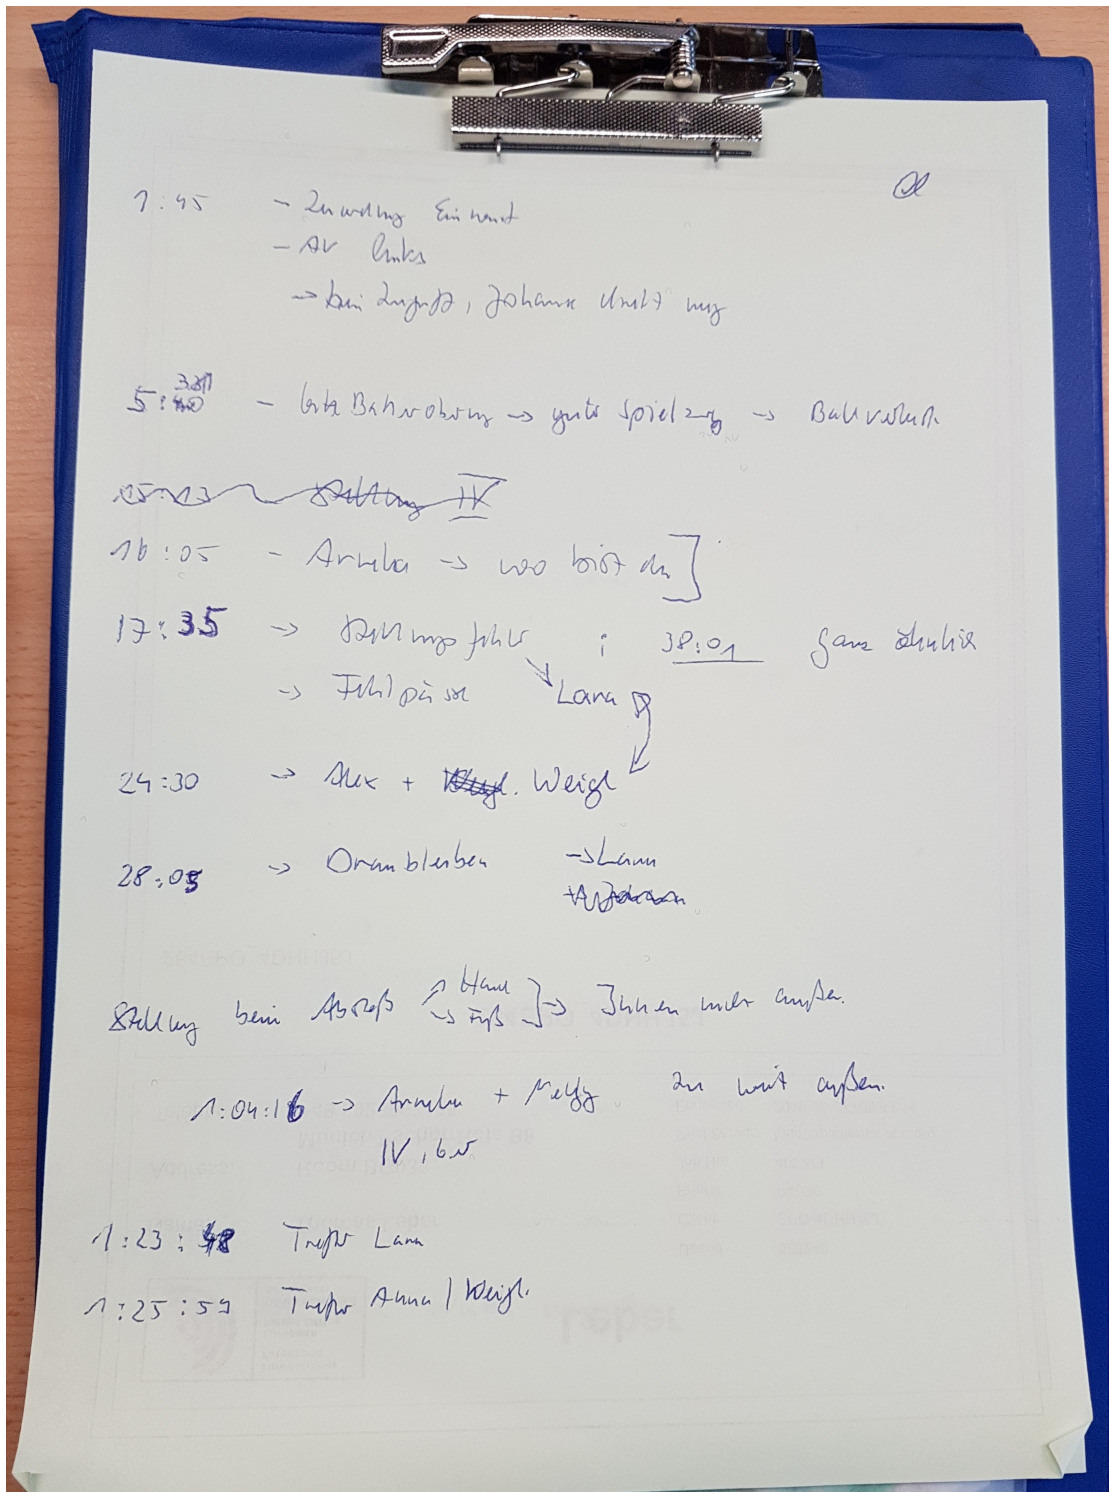 1:45 - Zuordnung Einwurf
- AV links
→ kein Zugriff, Johanna direkt weg
5:38 - gute Balleroberung → guter Spielzug → Ballverlust
15:13 Stellung IV
16:05 - Annika → wo bist du]
17:35 → Stellungsfehler ; 38:01 ganz ähnlich
→ Fehlpässe Lana
24:30 → Alex + Weigl
28:05 → Dranbleiben → Lana
Stellung beim Abstoß → Hand → Fuß ] → Innen mehr außen.
1:04:16 → Annika + Melly zu weit außen.
IV
1:23:48 Treffer Lana
1:25:59 Treffer Anna / Weigl.